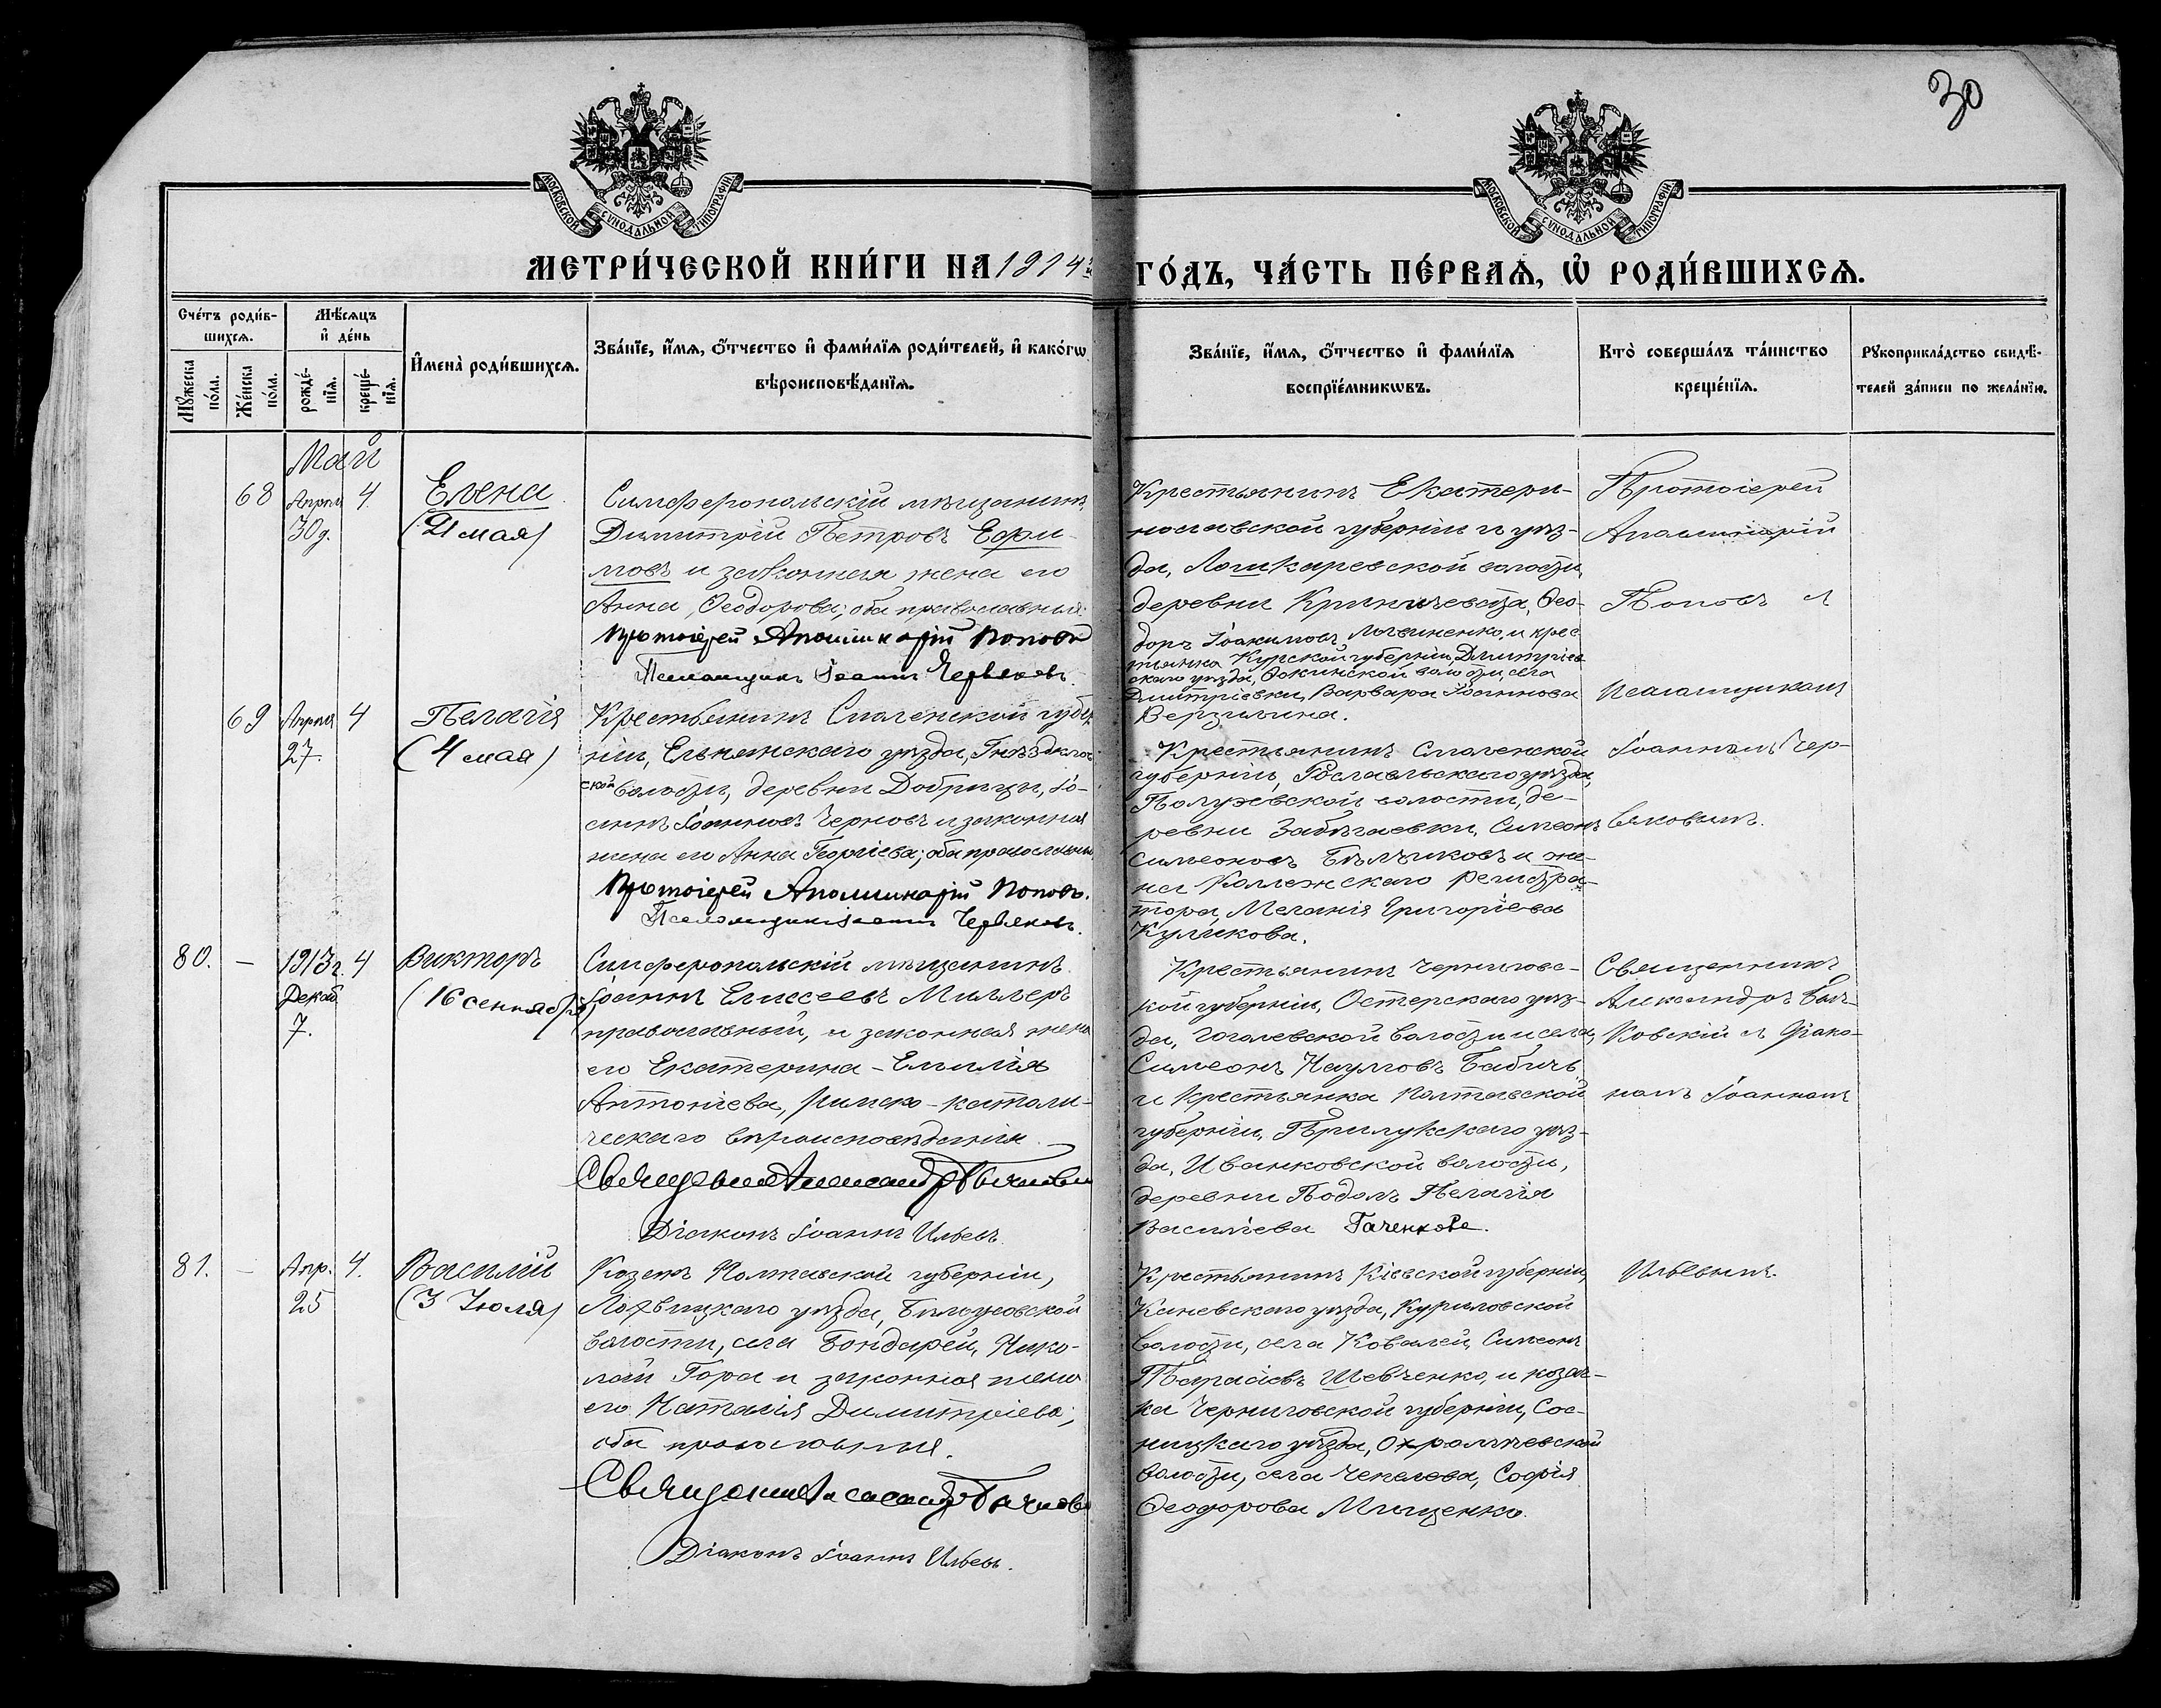 30
МОСКОВСКОЙ СѴНОДАЛЬНОЙ ТИПОГРАФІИ
МОСКОВСКОЙ СѴНОДАЛЬНОЙ ТИПОГРАФІИ
МЕТРИ́ЧЕСКОЙ КНИ́ГИ НА 1914 й ГО́ДЪ, ЧА́СТЬ ПЕ́РВАѦ, Ѡ҆ РОДИ́ВШИХСѦ.
Сче́тъ роди́в-
шихсѧ.
Мꙋ́жеска по́ла.
Же́нска по́ла.
Мѣ́сѧцъ
и҆ де́нь
рожде́-нїѧ.
креще́-нїѧ.
И҆мена̀ роди́вшихсѧ.
Зва́нїе, и҆́мѧ, ѻ҆́тчество и҆ фами́лїѧ роди́телей, и҆ како́гѡ
вѣроисповѣ́данїѧ.
Зва́нїе, и҆́мѧ, ѻ҆́тчество и҆ фами́лїѧ
воспрїе́мникѡвъ.
Кто̀ соверша́лъ та́инство
креще́нїѧ.
Рꙋкоприкла́дство свидѣ́-
телей за́писи по жела́нїю.
Май
68 Апрѣля 30 д. 4. Елена
(21 мая)
Симферопольскій мѣщанинъ
Димитрій Петровъ Ефи-
мовъ и законная жена его
Анна Ѳеодорова; оба православные.
Протоіерей Аполлинарій Поповъ
Псаломщикъ Іоаннъ Червяковъ.
Крестьянинъ Екатери-
нославской губерніи и уѣз-
да, Лошкаревской волости,
деревни Криничеватка, Ѳео-
доръ Іоакимовъ Логвиненко, и крес-
тьянка Курской губерніи, Дмитріев-
скаго уѣзда, волости, села
Дмитріевки, Варвара Іоаннова
Верзилина.
Протоіерей
Аполлинарій
Поповъ съ
псаломщикомъ
Іоанномъ Чер-
вяковымъ.
69 Апрѣля 27. 4 Пелагія
(4 мая)
Крестьянинъ Смоленской губер-
ніи, Ельнинскаго уѣзда,
ской волости, деревни Добрицы, Іо-
аннъ Іоанновъ Черновъ и законная
жена его Анна Георгіева; оба православные.
Протоіерей Аполлинарій Поповъ.
Псаломщикъ Іоаннъ Червяковъ.
Крестьянинъ Смоленской
губерніи, Рославльскаго уѣзда,
волости, де-
ревни Симеонъ
Симеоновъ и же-
на Коллежскаго регистра-
тора, Меланія Григоріева
Куликова.
80. — 1913 г. Декаб. 7. 4 Викторъ
(16 сентября)
Симферопольскій мѣщанинъ
Іоаннъ Елисеевъ Миллеръ
православный, и законная жена
его Екатерина-Емилія
Антоніева, Римско-католи-
ческаго вѣроисповѣданія.
Священникъ Александръ
Діаконъ Іоаннъ Ильевъ
Крестьянинъ Черниговс-
кой губерніи, Остерскаго уѣз-
да, Гоголевской волости и села,
Симеонъ Наумовъ Бабичъ
и крестьянка Полтавской
губерніи, Прилукскаго уѣз-
да, Иванковской волости,
деревни Подолъ Пелагія
Василіева Гаченкова.
Священникъ
Александръ
съ Діако-
номъ Іоанномъ
Ильевымъ.
81. — Апр. 25 4. Василій
(3 Іюля)
Козакъ Полтавской губерніи,
Лохвицкаго уѣзда,
волости, села Бондарей, Нико-
лай Гора и законная жена
его Наталія Димитріева;
оба православные.
Священникъ Александръ
Діаконъ Іоаннъ Ильевъ.
Крестьянинъ Кіевской губерніи,
Каневскаго уѣзда, Куриловской
волости, села Ковалей, Симеонъ
Тарасіевъ Шевченко, и козач-
ка Черниговской губерніи, Сос-
ницкаго уѣзда, Охрамѣевской
волости, села Чепелева, Софія
Ѳеодорова Мищенко.